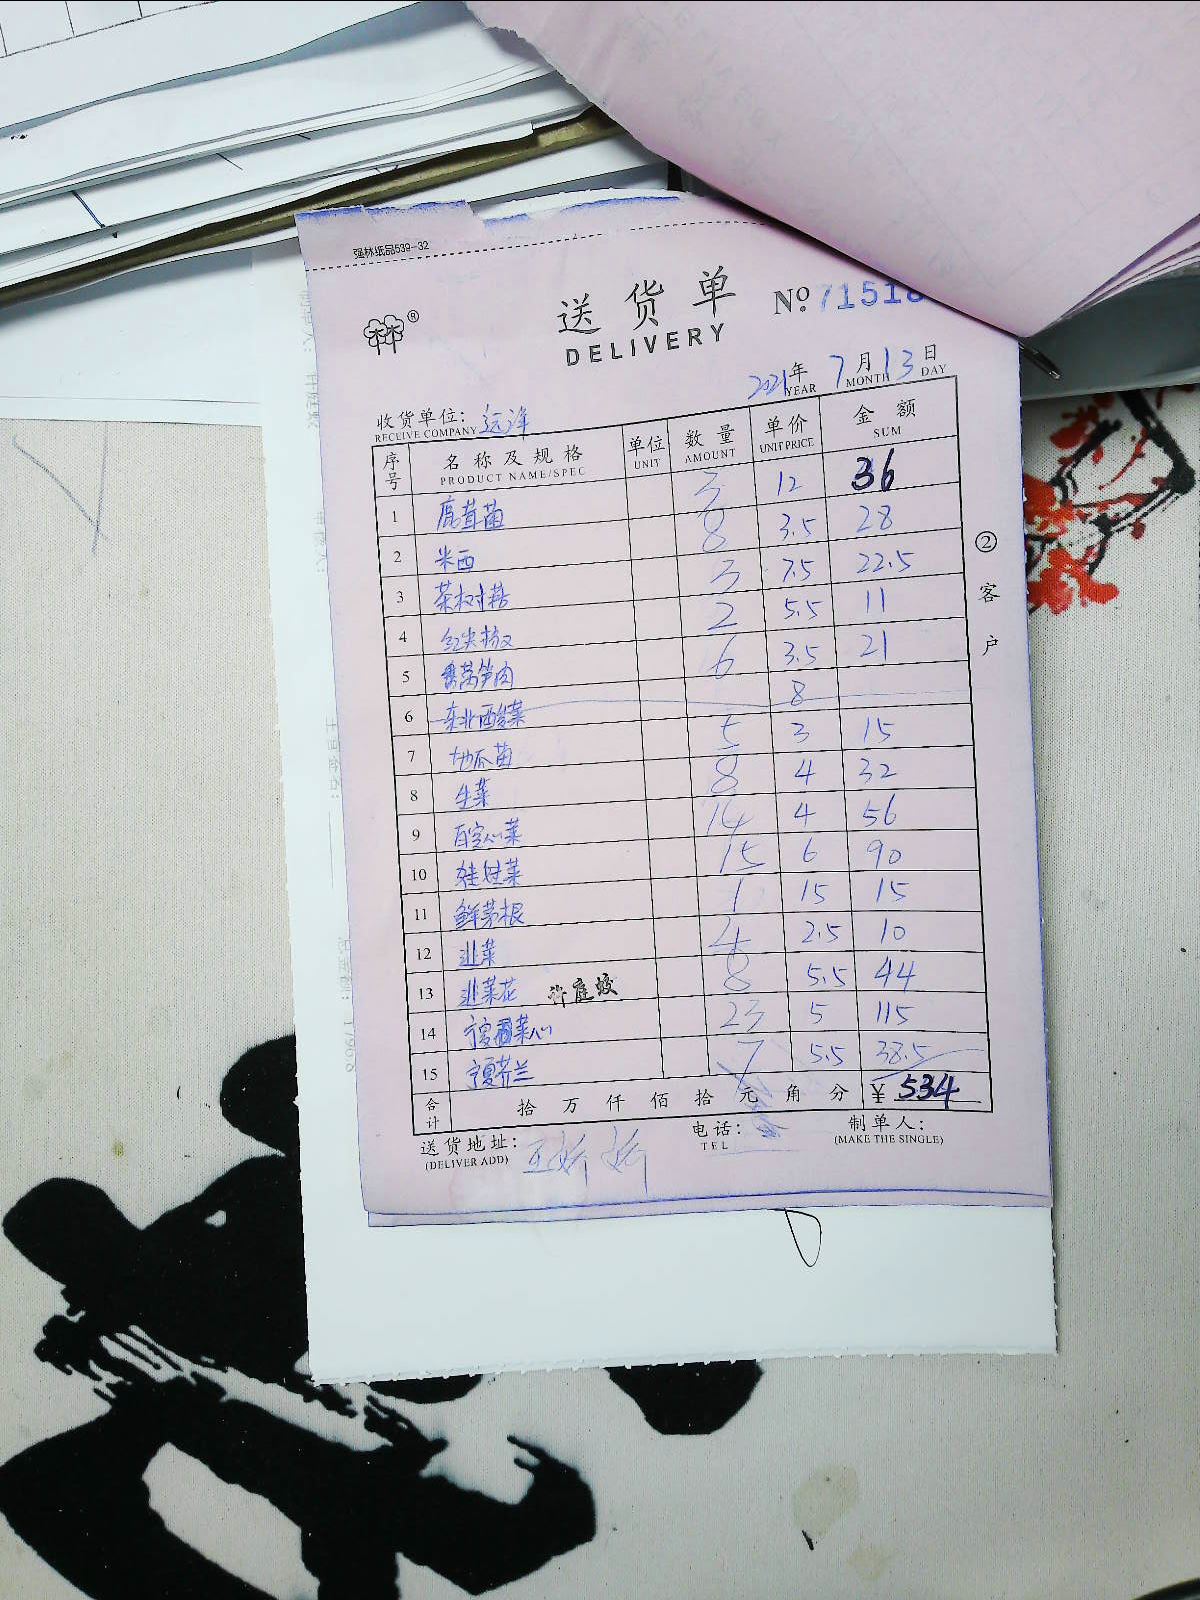 强林纸品539-32
送货单 №71518
DELIVERY
2021年 7月13日
YEAR MONTH DAY
收货单位: 远洋
RECEIVE COMPANY
序号 名称及规格 单位 数量 单价 金额
PRODUCT NAME/SPEC UNIT AMOUNT UNIT PRICE SUM
1 鹿茸菌 3 12 36
2 米西 8 3.5 28
3 茶树菇 3 7.5 22.5
4 红尖椒 2 5.5 11
5 莴笋肉 6 3.5 21
6 东北酸菜 8
7 地瓜苗 5 3 15
8 生菜 8 4 32
9 百空心菜 14 4 56
10 娃娃菜 15 6 90
11 鲜茅根 1 15 15
12 韭菜 4 2.5 10
13 韭菜花 许庭蛟 8 5.5 44
14 宁夏菜心 23 5 115
15 宁夏芥兰 7 5.5 38.5
合计 拾 万 仟 佰 拾 元 角 分 ¥ 534
送货地址: 电话: 制单人:
(DELIVER ADD) TEL (MAKE THE SINGLE)
②客户